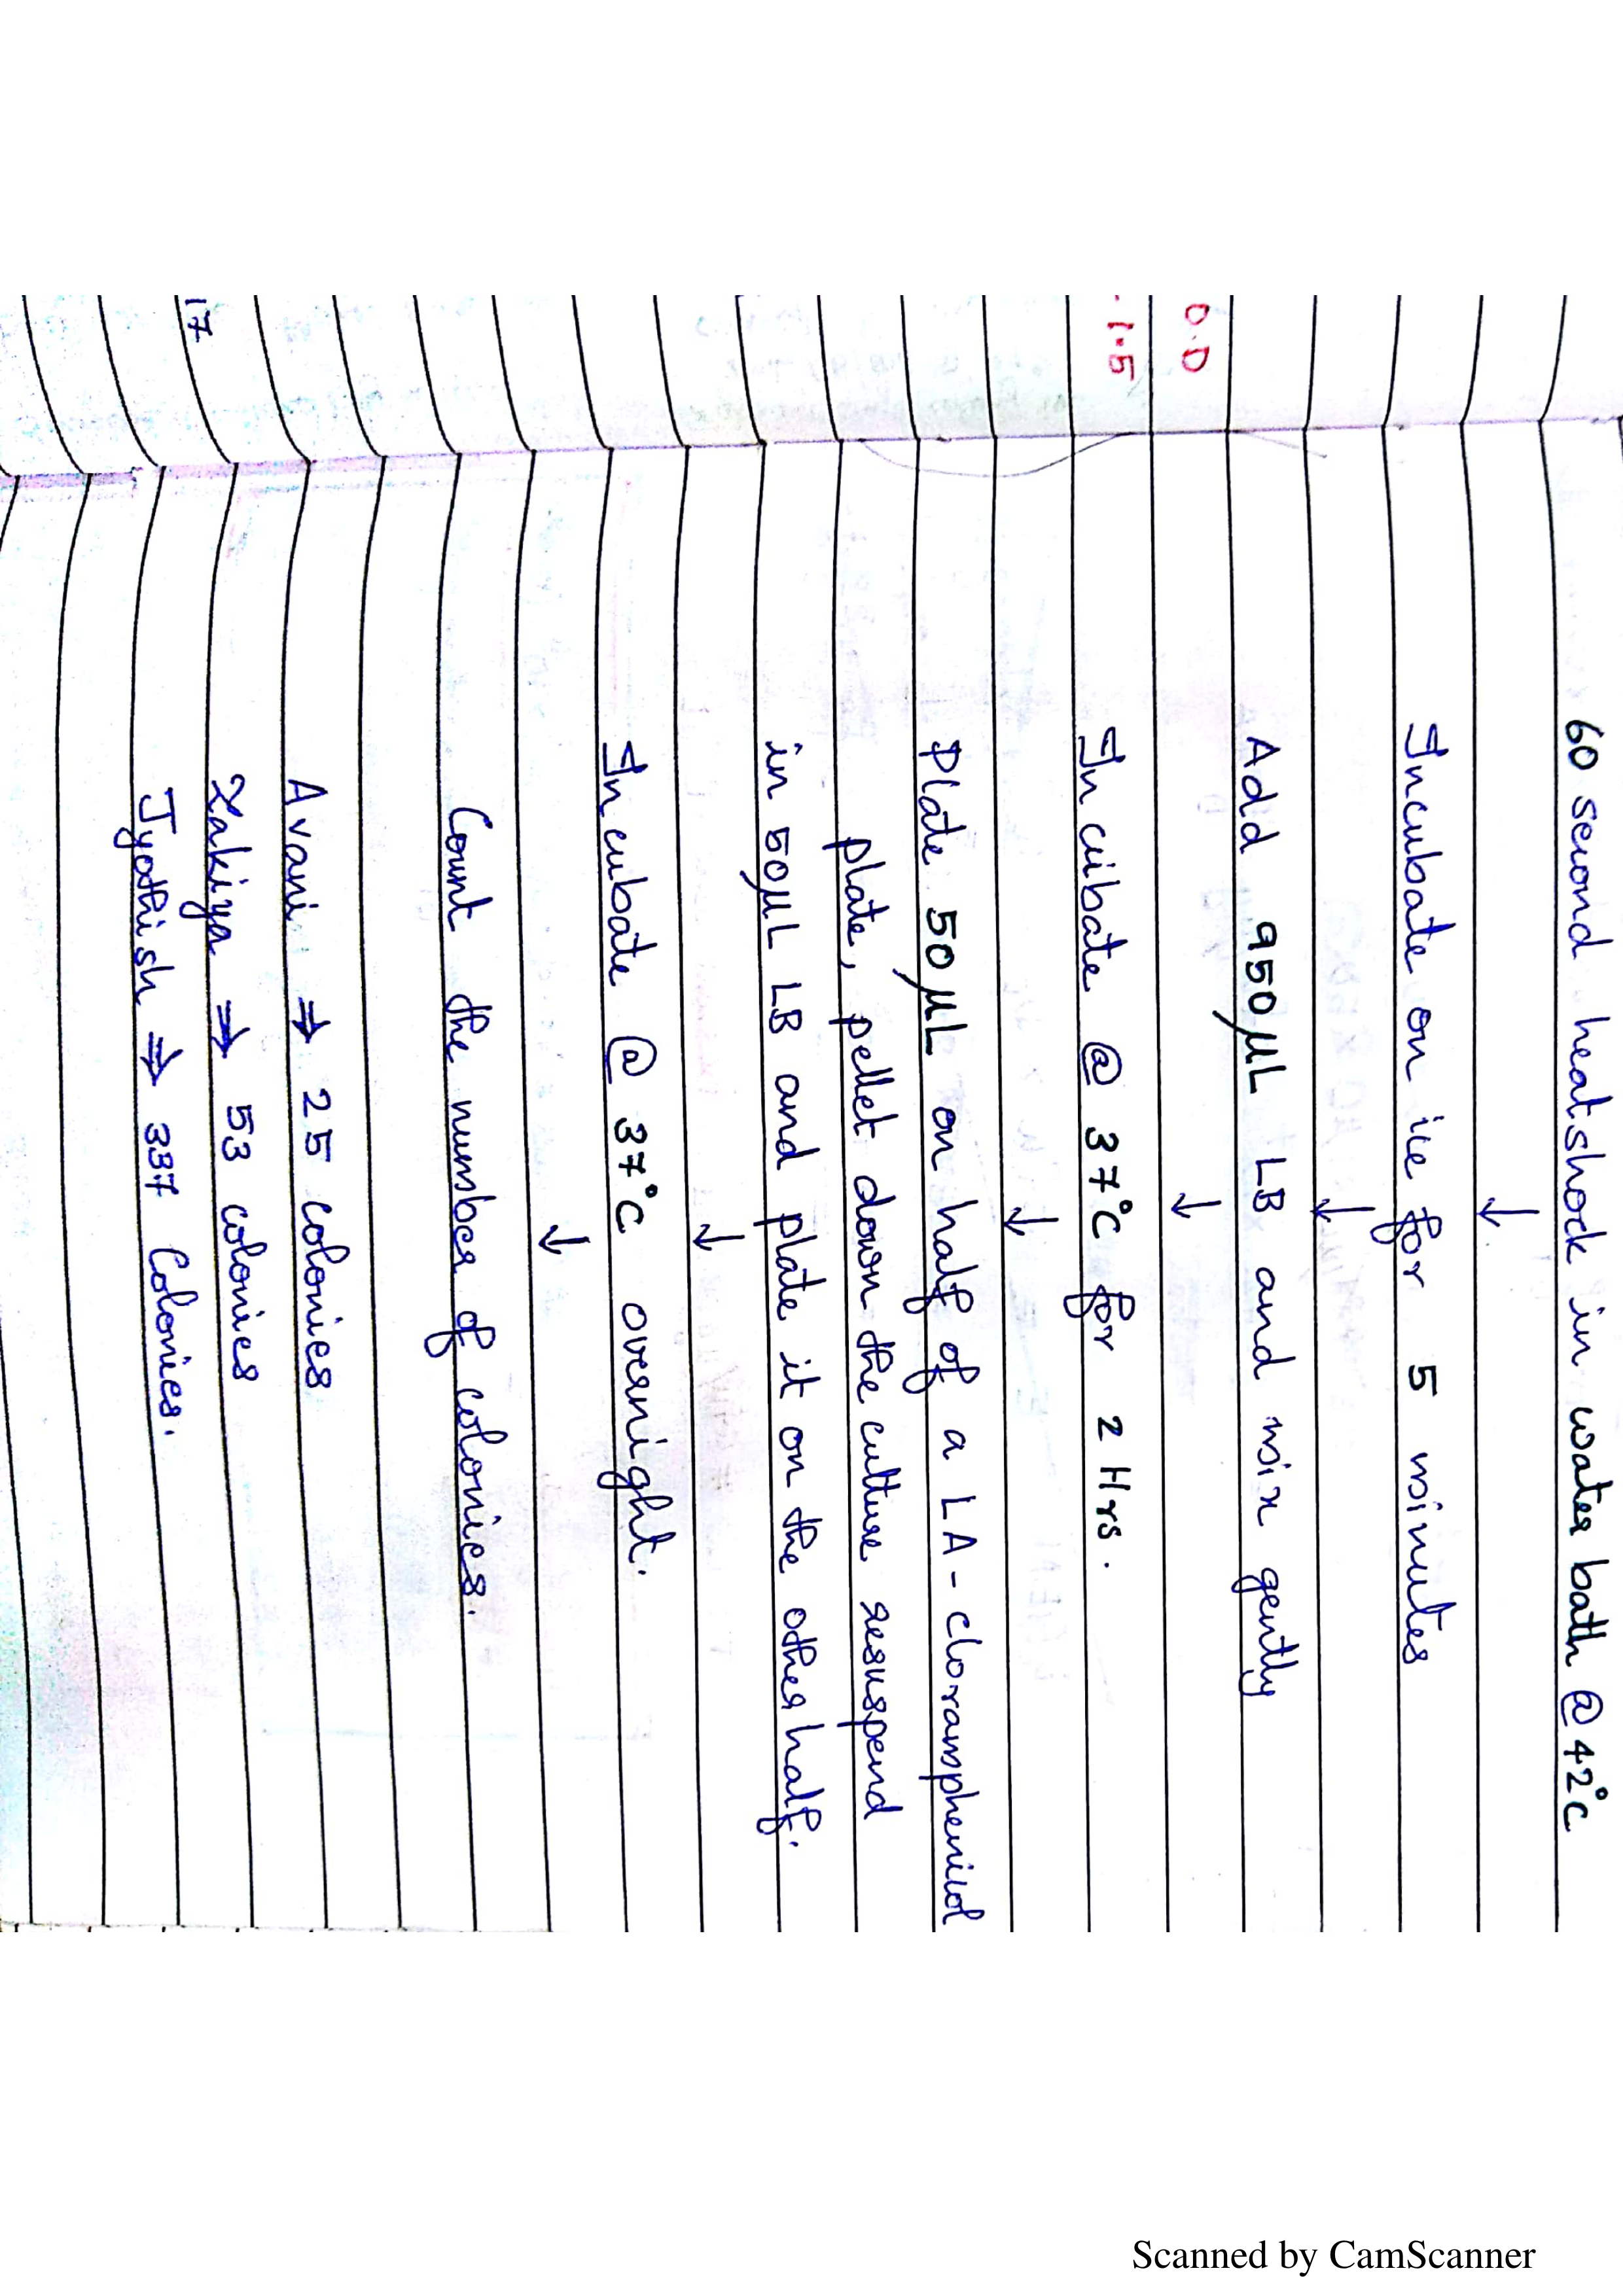 60 second heatshock in water bath @ 42°C
↓
Incubate on ice for 5 minutes
↓
Add 950µL LB and mix gently
↓
O.D
-1.5
Incubate @ 37°C for 2 Hrs.
↓
Plate 50µL on half of a LA-cloramphenicol
plate, pellet down the culture resuspend
in 50µL LB and plate it on the other half.
↓
Incubate @ 37°C overnight.
↓
Count the number of colonies.
Avani ⇒ 25 colonies
Zakiya ⇒ 53 colonies
17
Jyothish ⇒ 337 Colonies.
Scanned by CamScanner